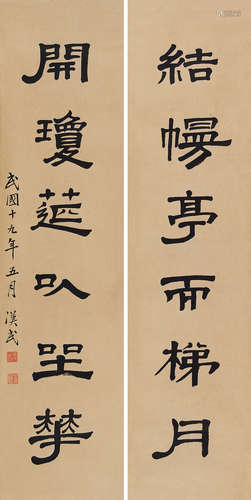 結幔亭而梯月
開瓊莚㕥坐華
民國十九年五月 漢民